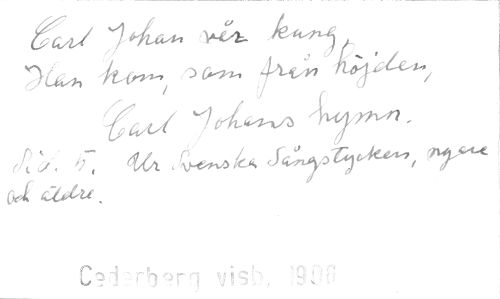 Carl Johan vår kung,
Han kom, som från höjden,
Carl Johans hymn.
Sid. 5. Ur Svenska Sångstycken, nyare
och äldre.
Cederberg visb. 1908